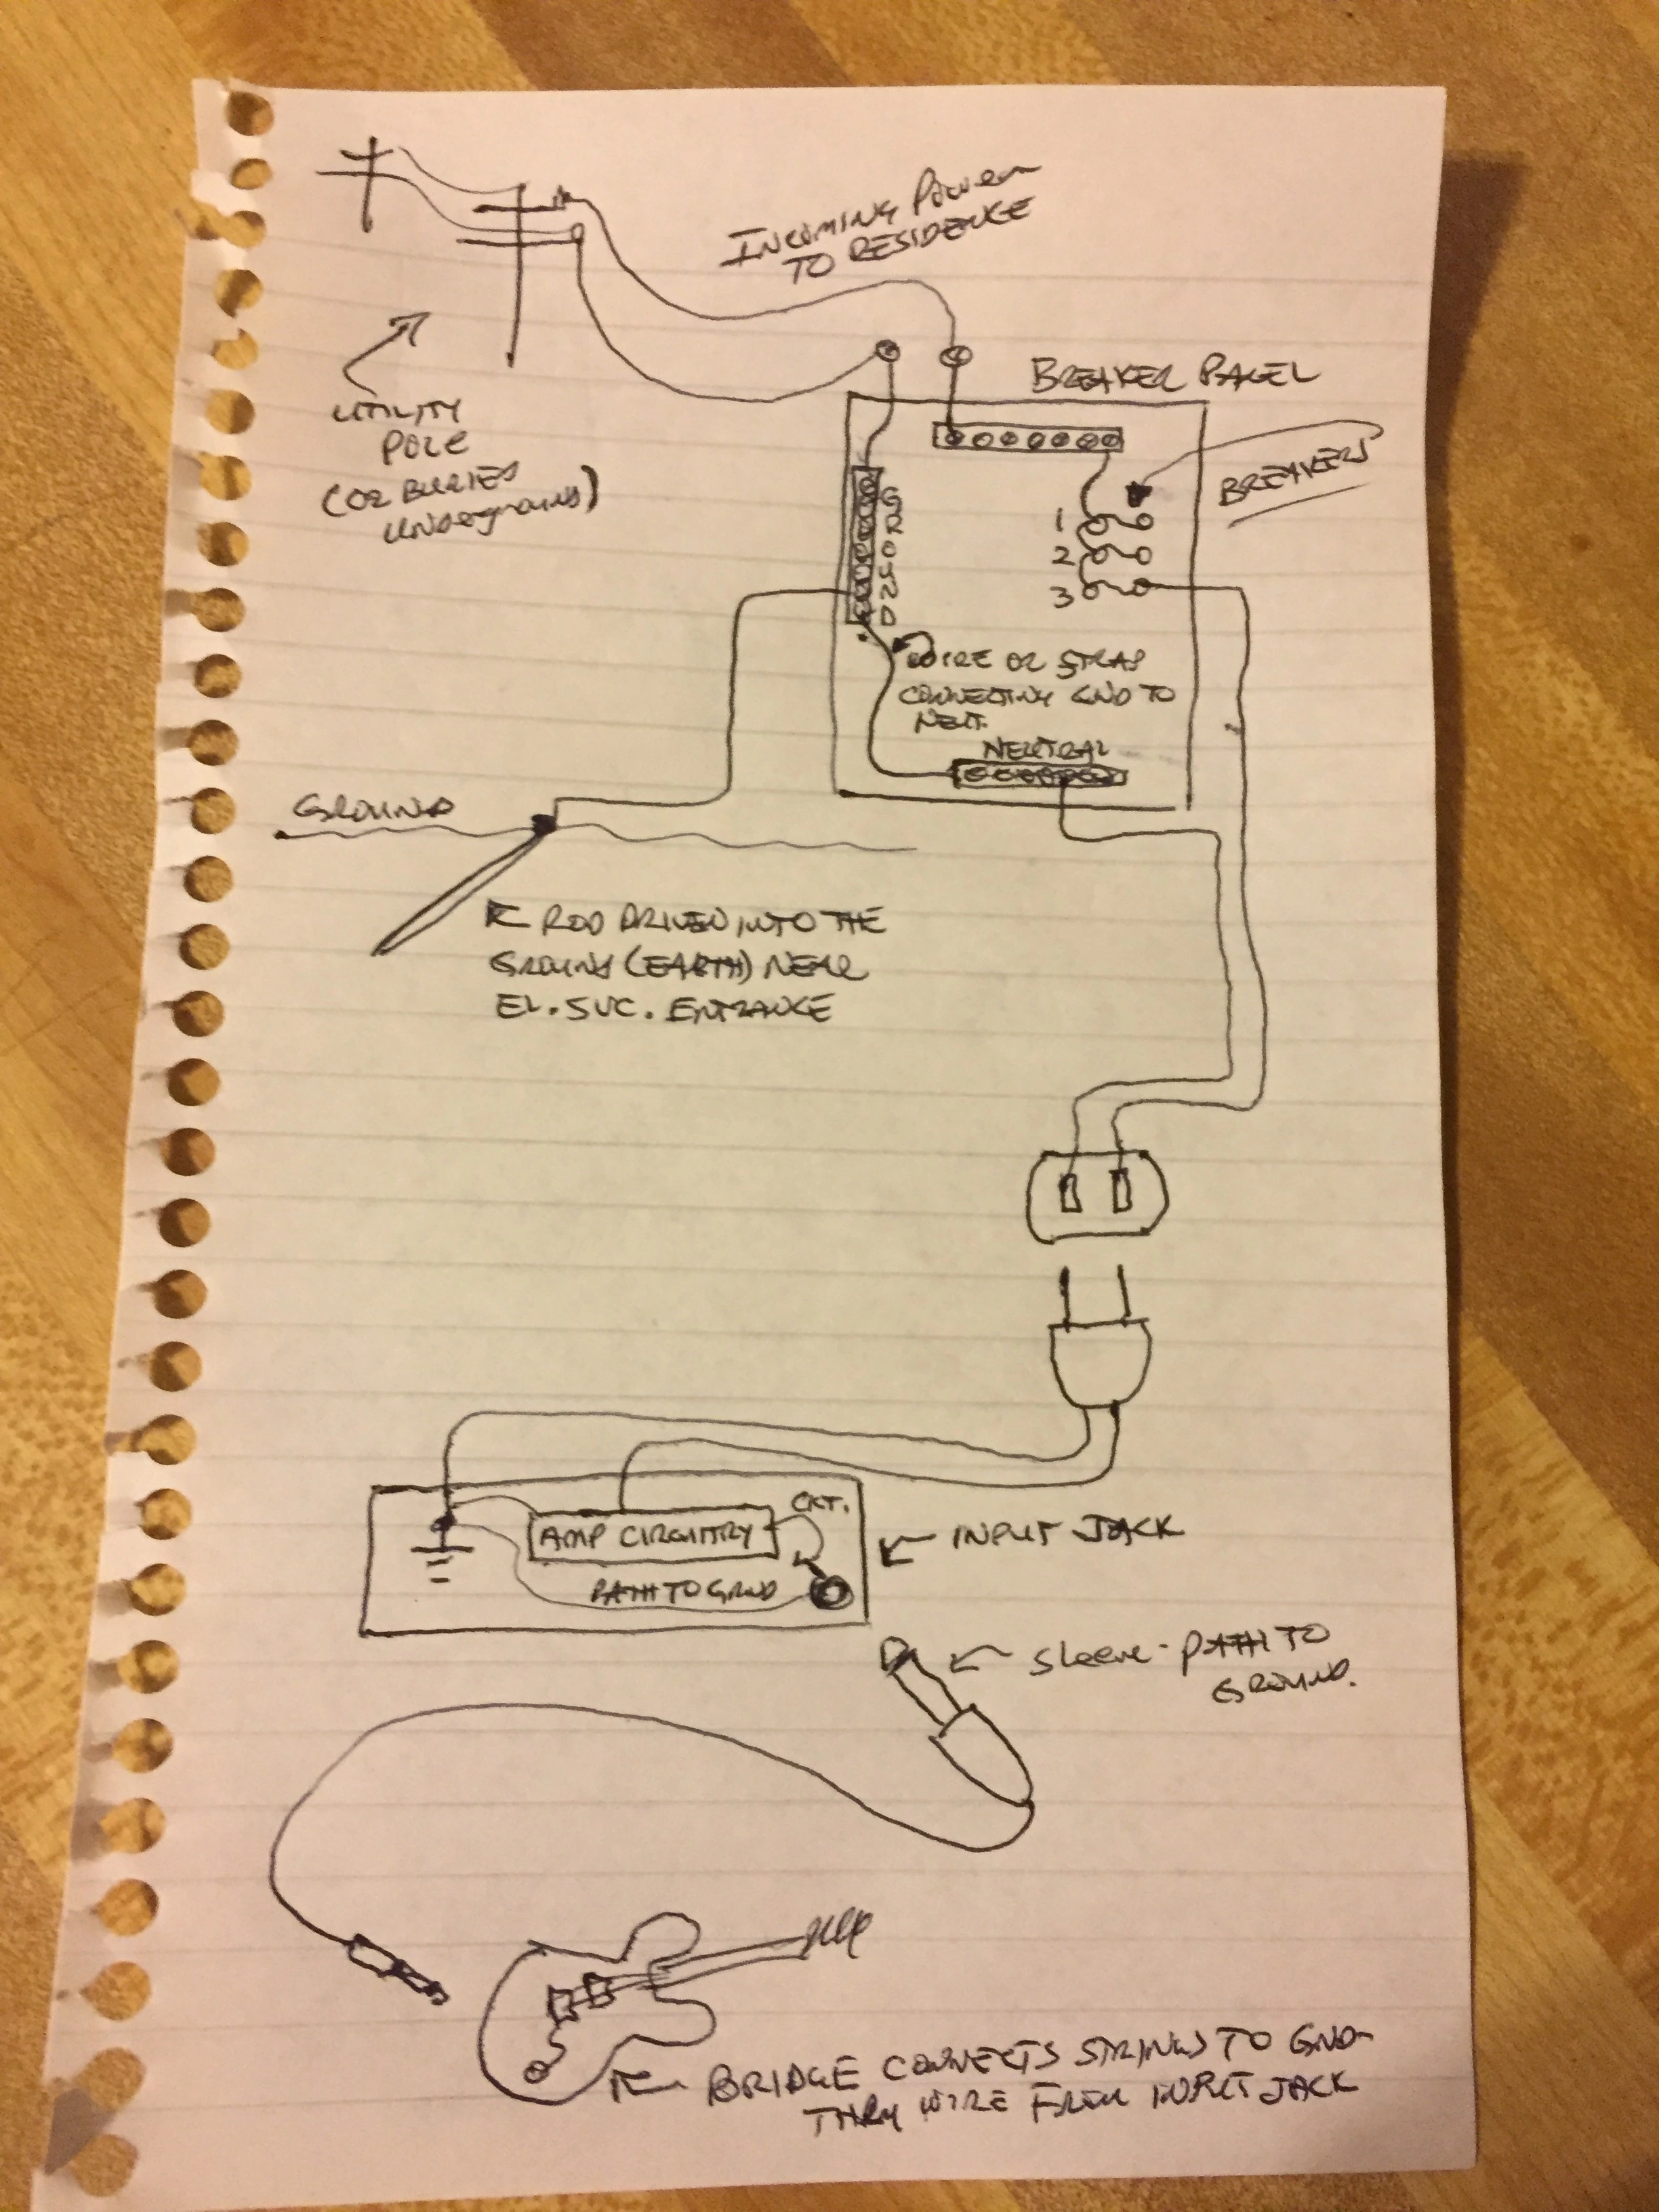 INCOMING POWER
TO RESIDENCE
UTILITY
POLE
(OR BURIED
UNDERGROUND)
BREAKER PANEL
BREAKERS
GROUND
1
2
3
WIRE OR STRAP
CONNECTING GND TO
NEUT.
NEUTRAL
GROUND
ROD DRIVEN INTO THE
GROUND (EARTH) NEAR
EL. SVC. ENTRANCE
CKT.
AMP CIRCUITRY
INPUT JACK
PATH TO GRND
Sleeve - PATH TO
GROUND.
BRIDGE CONNECTS STRINGS TO GND
THRU WIRE FROM INPUT JACK